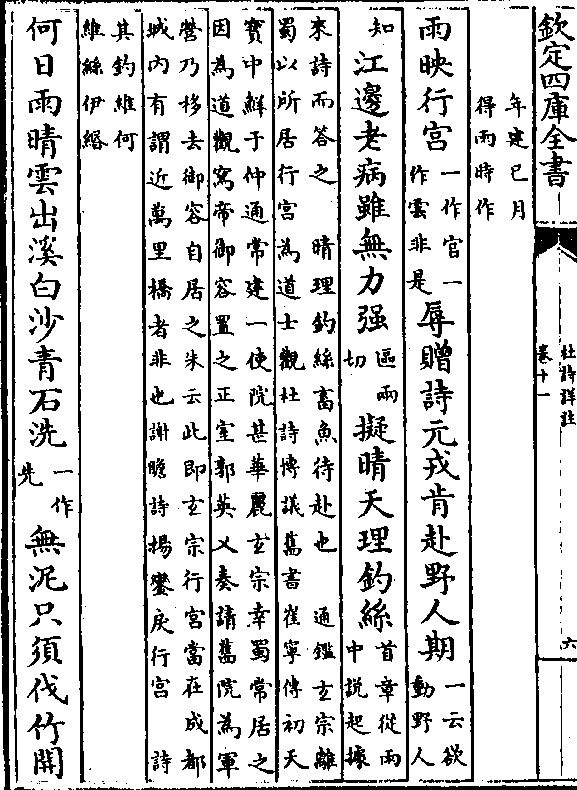 欽定四庫全書
杜詩詳註
卷十一
六
年建巳月
得雨時作
雨映行宮一作官一作雲非是辱贈詩元戎肯赴野人期一云欲動野人
知江邊老病雖無力强區兩切擬晴天理釣絲首章從雨中說起據
來詩而答之　晴理釣絲畜魚待赴也　通鑑玄宗離
蜀以所居行宮為道士觀杜詩博議舊書崔寧傳初天
寶中鮮于仲通常建一使院甚華麗玄宗幸蜀常居之
因為道觀寫帝御容置之正室郭英乂奏請舊院為軍
營乃移去御容自居之朱云此即玄宗行宮當在成都
城內有謂近萬里橋者非也謝瞻詩揚鑾戾行宮　詩
其釣維何
維絲伊緡
何日雨晴雲出溪白沙青石洗一作先無泥只須伐竹開